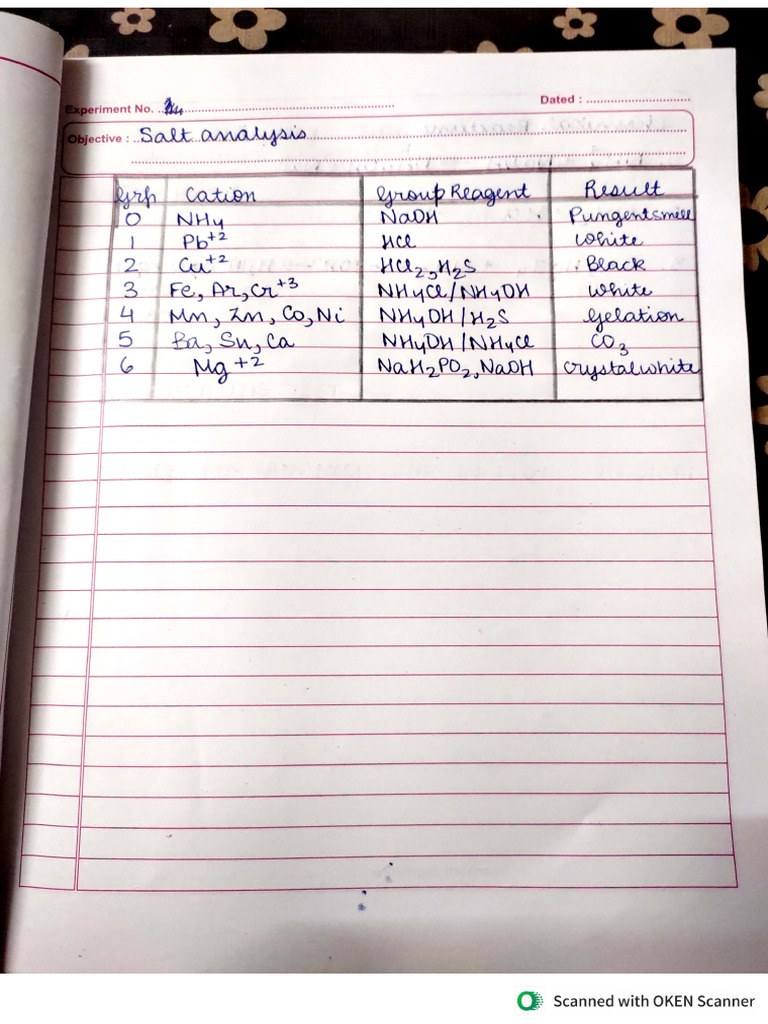 Experiment No.
Dated :
Objective : Salt analysis
Grp Cation Group Reagent Result
0 NH4 NaOH Pungent smell
1 Pb+2 HCl White
2 Cu+2 HCl2, H2S Black
3 Fe, Ar, Cr+3 NH4Cl/NH4OH White
4 Mn, Zn, Co, Ni NH4OH/H2S Gelation
5 Ba, Sn, Ca NH4OH/NH4Cl CO3
6 Mg+2 NaH2PO2, NaOH Crystal white
Scanned with OKEN Scanner